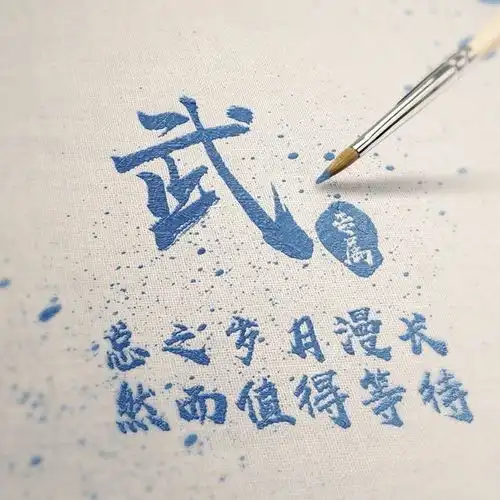 武
专属
总之岁月漫长
然而值得等待